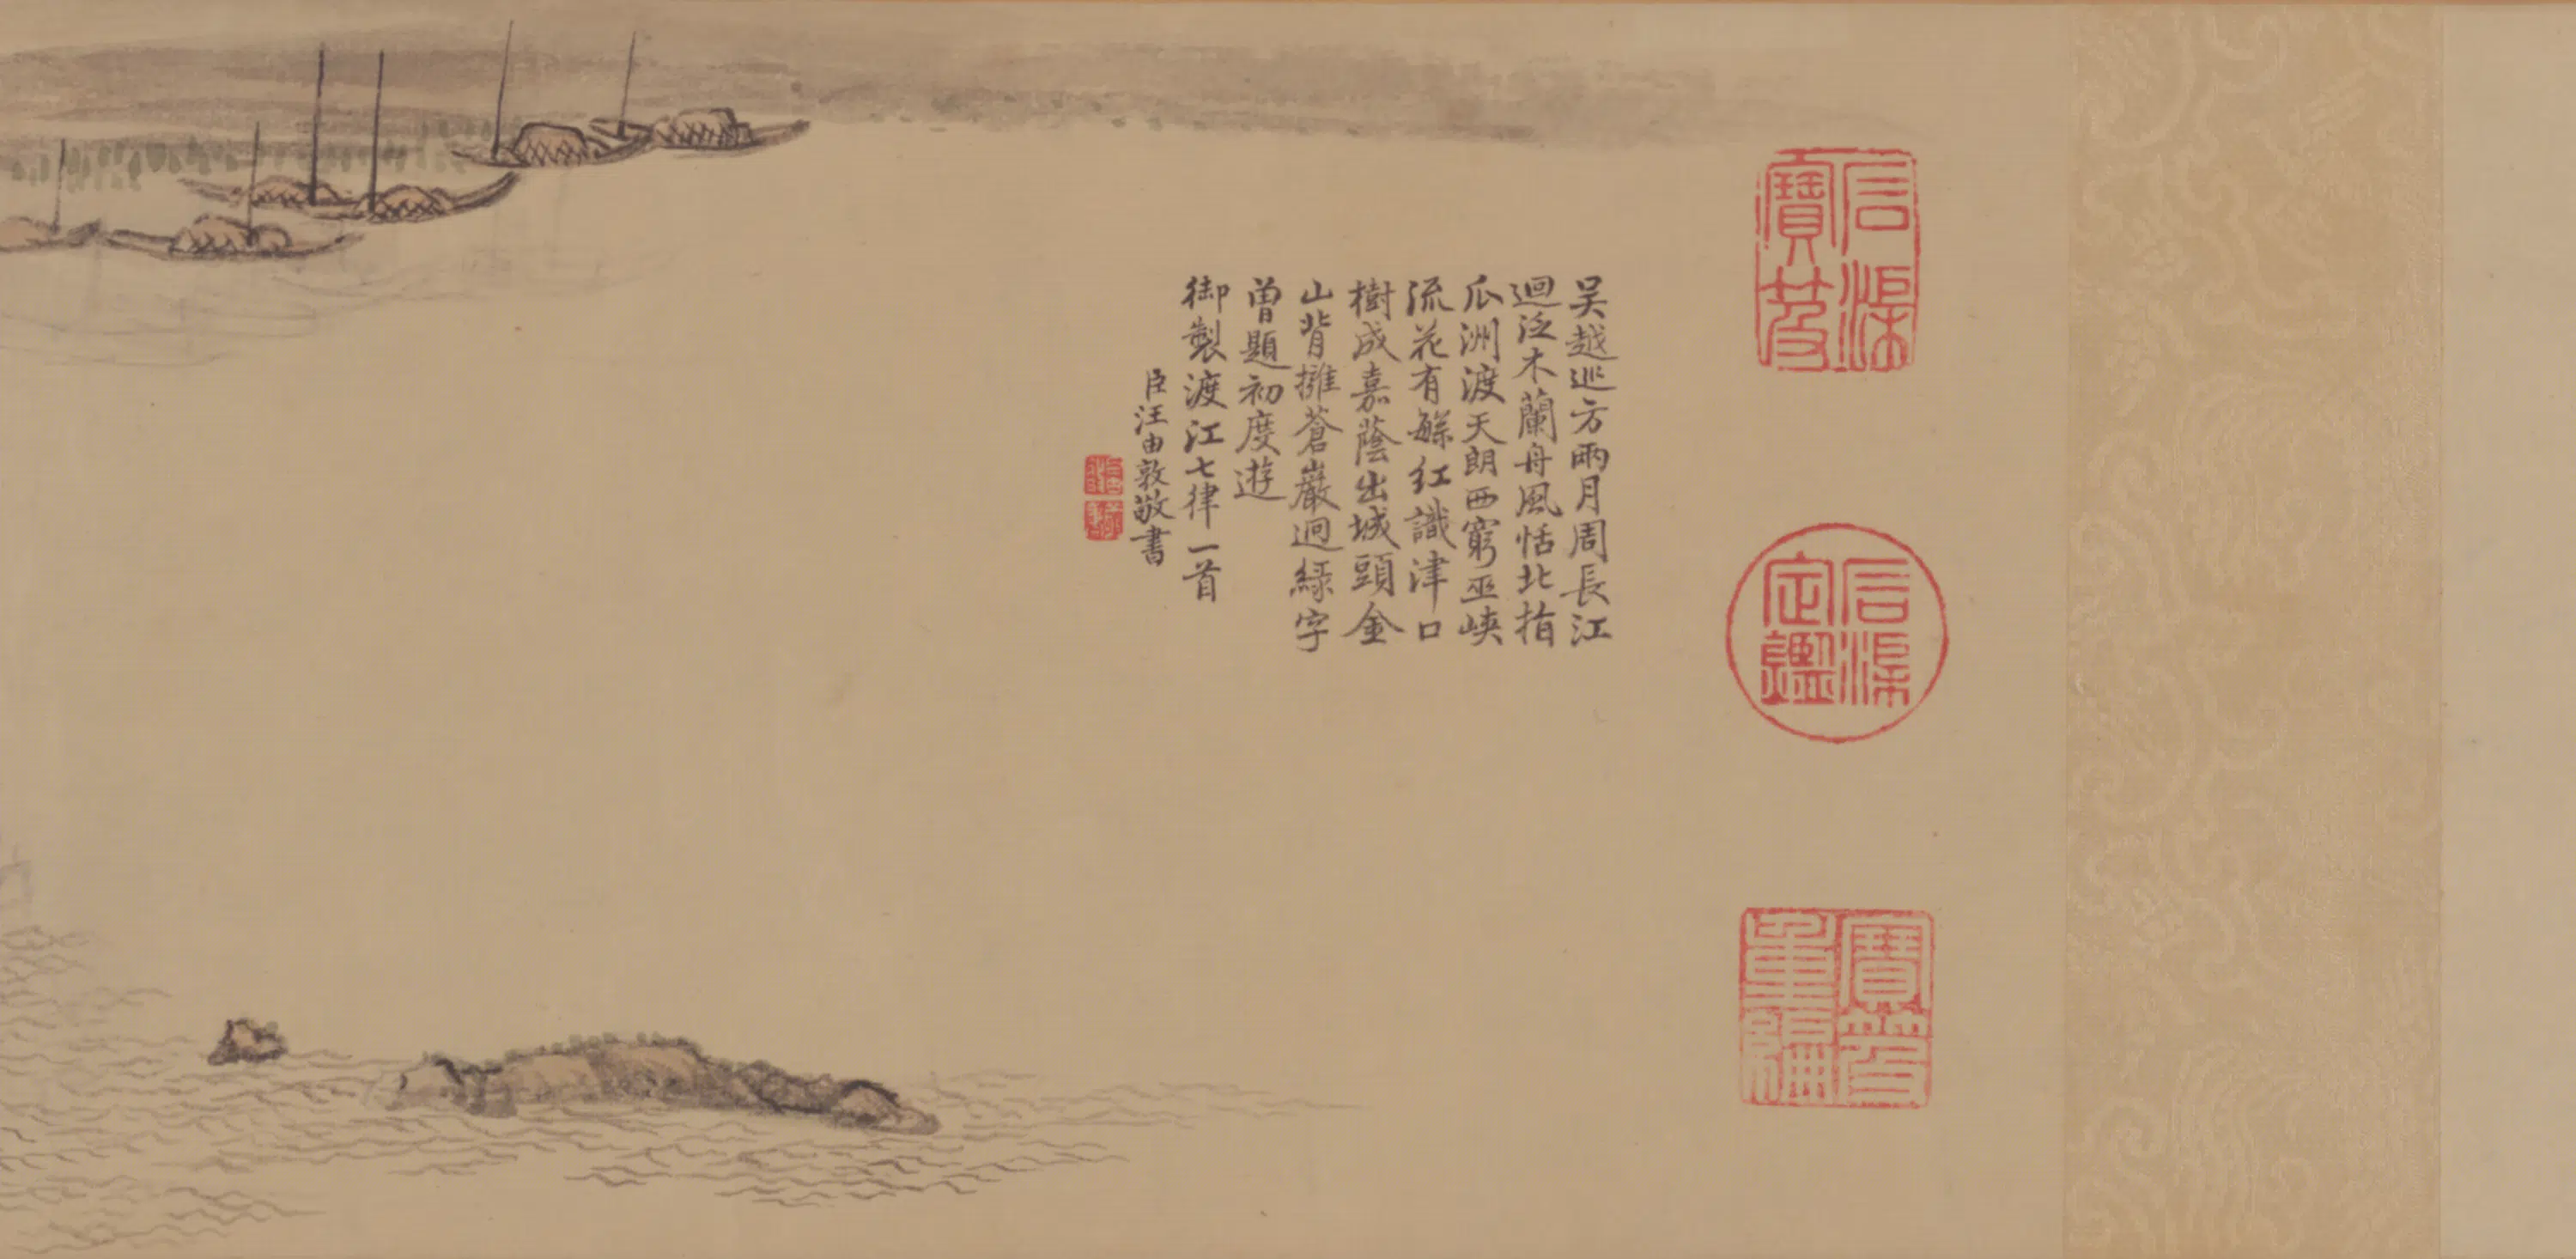 石渠
寶笈
石渠
定鑑
寶笈
重編
吴越巡方兩月周長江
迴泛木蘭舟風恬北指
瓜洲渡天朗西窮巫峽
流花有緐紅識津口
樹成嘉蔭出城頭金
山背擁蒼巖迥綠字
曽題初度遊
御製渡江七律一首
臣汪由敦敬書